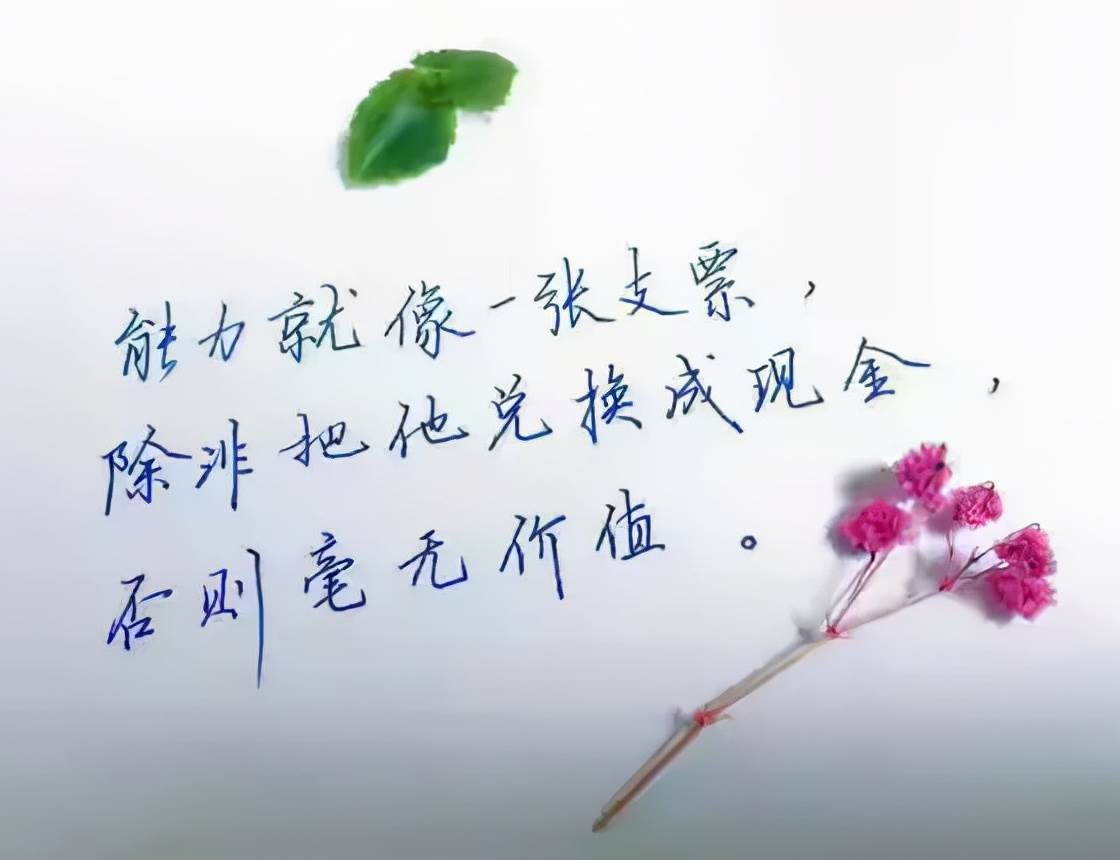 能力就像一张支票，
除非把他兑换成现金，
否则毫无价值。